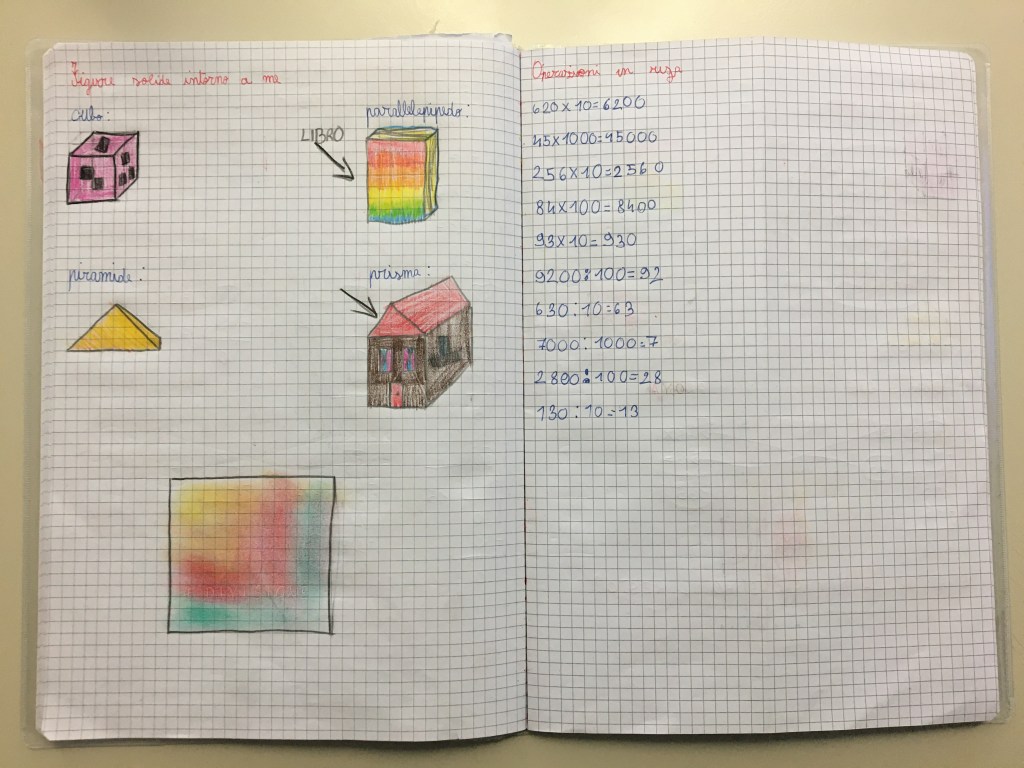 Figure solide intorno a me
cubo:
parallelepipedo:
LIBRO
piramide:
prisma:
Operazioni in riga
620x10=6200
45x1000=45000
256x10=2560
84x100=8400
93x10=930
9200:100=92
630:10=63
7000:1000=7
2800:100=28
130:10=13